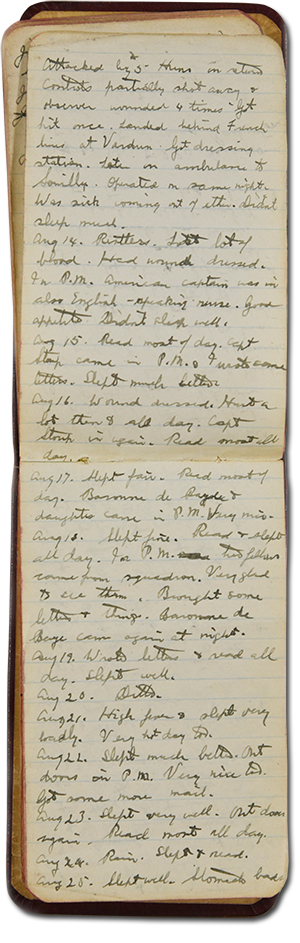 Attacked by 5 Huns in
Controls partially shot away &
observer wounded 4 times. Got
hit once. Landed behind French
lines at Verdun. Got dressing
station. Later in ambulance to
Souilly. Operated on same night.
Was sick coming out of ether. Didn't
sleep much.
Aug 14. Restless. Lost lot of
blood. Head wound dressed.
In P.M. American captain was in
also English-speaking nurse. Good
appetite. Didn't sleep well.
Aug 15. Read most of day. Capt
came in P.M. & I wrote some
letters. Slept much better.
Aug 16. Wound dressed. Hurt a
lot then & all day. Capt
in again. Read most all
day.
Aug 17. Slept fair. Read most of
day. Baronne de &
daughter came in P.M. Very nice.
Aug 18. Slept fine. Read & slept
all day. In P.M. two fellows
came from squadron. Very glad
to see them. Brought some
letters & things. Baronne de
came again at night.
Aug 19. Wrote letters & read all
day. Slept well.
Aug 20. Ditto.
Aug 21. High fever & slept very
badly. Very hot day too.
Aug 22. Slept much better. Out
doors in P.M. Very nice too.
Got some more mail.
Aug 23. Slept very well. Out doors
again. Read most all day.
Aug 24. Rain. Slept & read.
Aug 25. Slept well. Stomach bad